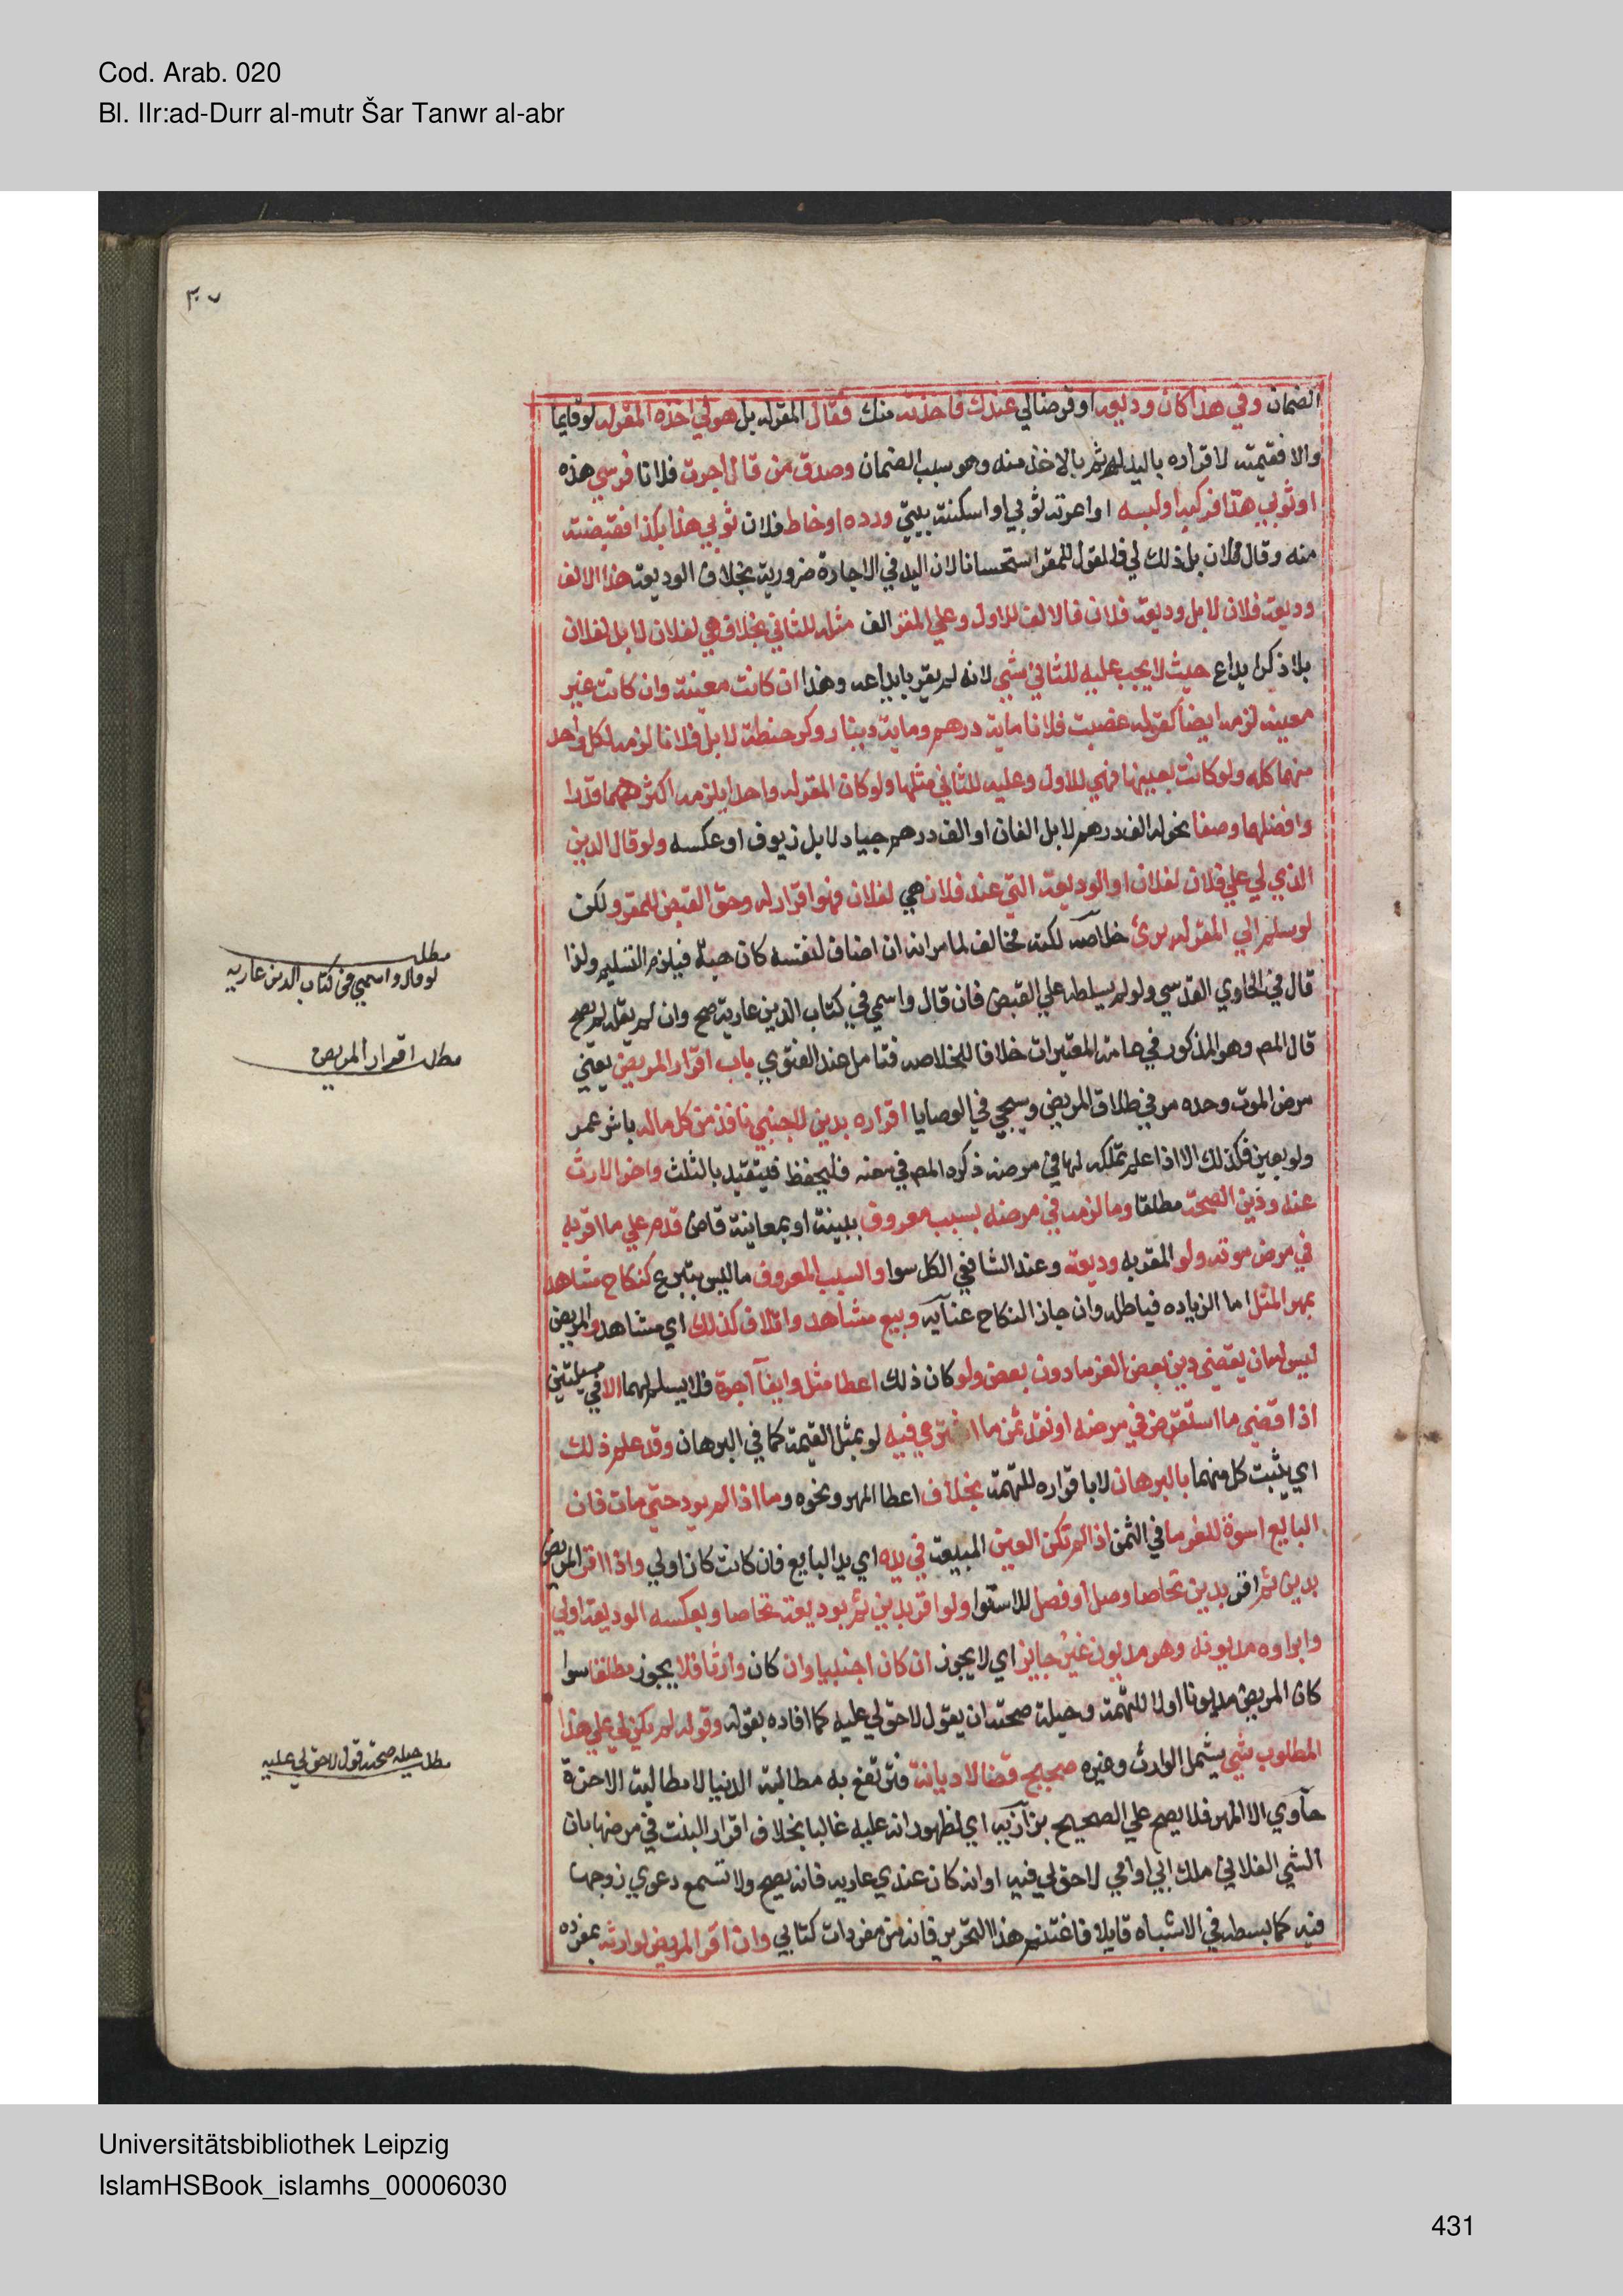 Cod. Arab. 020
Bl. IIr:ad-Durr al-mutr Šar Tanwr al-abr
٣٠٧
الضمان وفي هذا كان وديعة او قرضا لي عندك فاخذته منك فقال المقر له بل هو لي اخذه المقر له لو قايما
والا فقيمته لاقراره باليد له ثم بالاخذ منه وهو سبب الضمان وصدق من قال اجرت فلانا فرسي هذه
او ثوبي هذا فركبه او لبسه او اعرته ثوبي او اسكنته بيتي ورده او خاط فلان ثوبي هذا بكذا فقبضته
منه وقال فلان بل ذلك لي فالقول للمقر استحسانا لان اليد في الاجارة ضرورية بخلاف الوديعة هذا الالف
وديعة فلان لا بل وديعة فلان فالالف للاول وعلي المقر الف مثله للثاني بخلاف هي لفلان لا بل لفلان
بلا ذكر ايداع حيث لا يجب عليه للثاني شي لانه لم يقر بايداعه وهذا ان كانت معينة وان كانت غير
معينة لزمه ايضا كقوله غصبت فلانا ماية درهم وماية دينار وكر حنطة لا بل فلانا لزمه لكل واحد
منهما كله ولو كانت بعينها فهي للاول وعليه للثاني مثلها ولو كان المقر له واحدا يلزمه اكثرهما قدرا
وافضلهما وصفا نحو له الف درهم لا بل الفان او الف درهم جياد لا بل زيوف او عكسه ولو قال الدين
الذي لي علي فلان لفلان او الوديعة التي عند فلان هي لفلان فهو اقرار له وحق القبض للمقر ولكن
لو سلم الي المقر له بري خلاصه لكنه مخالف لما مر انه ان اضاف لنفسه كان هبة فيلزم التسليم ولذا
قال في الحاوي القدسي ولو لم يسلطه علي القبض فان قال واسمي في كتاب الدين عارية صح وان لم يقله لم يصح
قال المص وهو المذكور في عامة المعتبرات خلافا للخلاصه فتامل عند الفتوي باب اقرار المريض يعني
مرض الموت وحده مر في طلاق المريض وسيجي في الوصايا اقراره بدين لاجنبي نافذ من كل ماله باثر عمر
ولو بعين فكذلك الا اذا علم تملكه لها في مرضه ذكره المص في معنه فليحفظ فيتقيد بالثلث واخر الارث
عنه ودين الصحة مطلقا وما لزمه في مرضه بسبب معروف ببينة او بمعاينة قاض قدم علي ما اقر به
في مرض موته ولو المقر به وديعة وعند الشافعي الكل سوا والسبب المعروف ما ليس بتبرع كنكاح مشاهد
بمهر المثل اما الزياده فباطل وان جاز النكاح عنايه وبيع مشاهد واتلاف كذلك اي مشاهد والمريض
ليس له ان يقضي دين بعض الغرما دون بعض ولو كان ذلك اعطا مثل وايفا اجرة فلا يسلم لهما الا في مسيلتين
اذا قضي ما استقرض في مرضه او نقد ثمن ما اشتري فيه لو بمثل القيمة كما في البرهان وقد علم ذلك
اي يثبت كل منهما بالبرهان لا باقراره للتهمة بخلاف اعطا المهر ونحوه وما اذا لم يود حتي مات فان
البايع اسوة للغرما في الثمن اذا لم تكن العين المبيعة في يده اي يد البايع فان كانت كان اولي واذا اقر المريض
بدين ثم اقر بدين تحاصا وصل او فصل للاستوا ولو اقر بدين ثم بوديعة تحاصا وبعكسه الوديعة اولي
وابراوه مديونه وهو مديون غير جايز اي لا يجوز ان كان اجنبيا وان كان وارثا فلا يجوز مطلقا سوا
كان المريض مديونا اولا للتهمة وحيلة صحته ان يقول لا حق لي عليه كما افاده بقوله وقوله لم يكن لي علي هذا
المطلوب شي يشمل الوارث وغيره صحيح قضا لا ديانة فترتفع به مطالبة الدنيا لا مطالبة الاخرة
حاوي الا المهر فلا يصح علي الصحيح بزازيه اي لظهور انه عليه غالبا بخلاف اقرار البنت في مرضها بان
الشي الفلاني ملك ابي او امي لا حق لي فيه او انه كان عندي عارية فانه يصح ولا تسمع دعوي زوجها
فيه كما بسطه في الاشباه قايلا فاغتنم هذا التحرير فانه من مفردات كتابي وان اقر المريض لوارثه بمفرده
مطلب
لو قال واسمي في كتاب الدين عاريه
مطلب اقرار المريض
مطلب حيله صحته قول لا حق لي عليه
Universitätsbibliothek Leipzig
IslamHSBook_islamhs_00006030
431